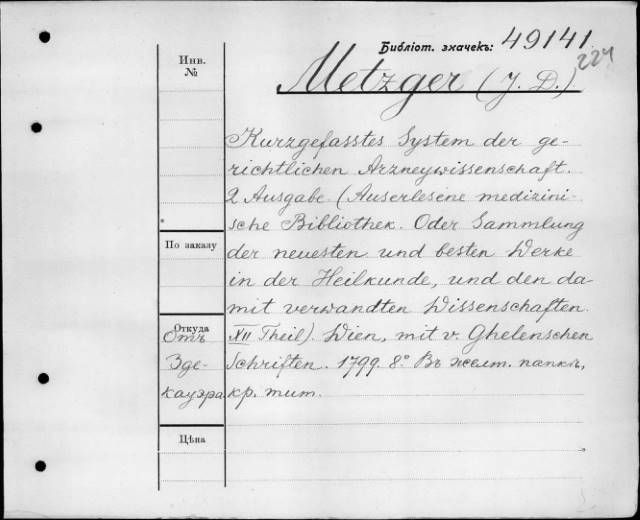 Библіот. значекъ: 49141.
224
Инв.
№
Metzger (J. D.)
Kurzgefasstes System der ge-
richtlichen Arzneywissenschaft.
2 Ausgabe. (Auserlesene medizini-
sche Bibliothek. Oder Sammlung
der neuesten und besten Werke
in der Heilkunde, und den da-
mit verwandten Wissenschaften.
XII Theil). Wien, mit v. Ghelenschen
Schriften. 1799. 8° Въ желт. папкѣ,
кр. тит.
По заказу
Откуда
Отъ
Зде-
кауэра
Цѣна